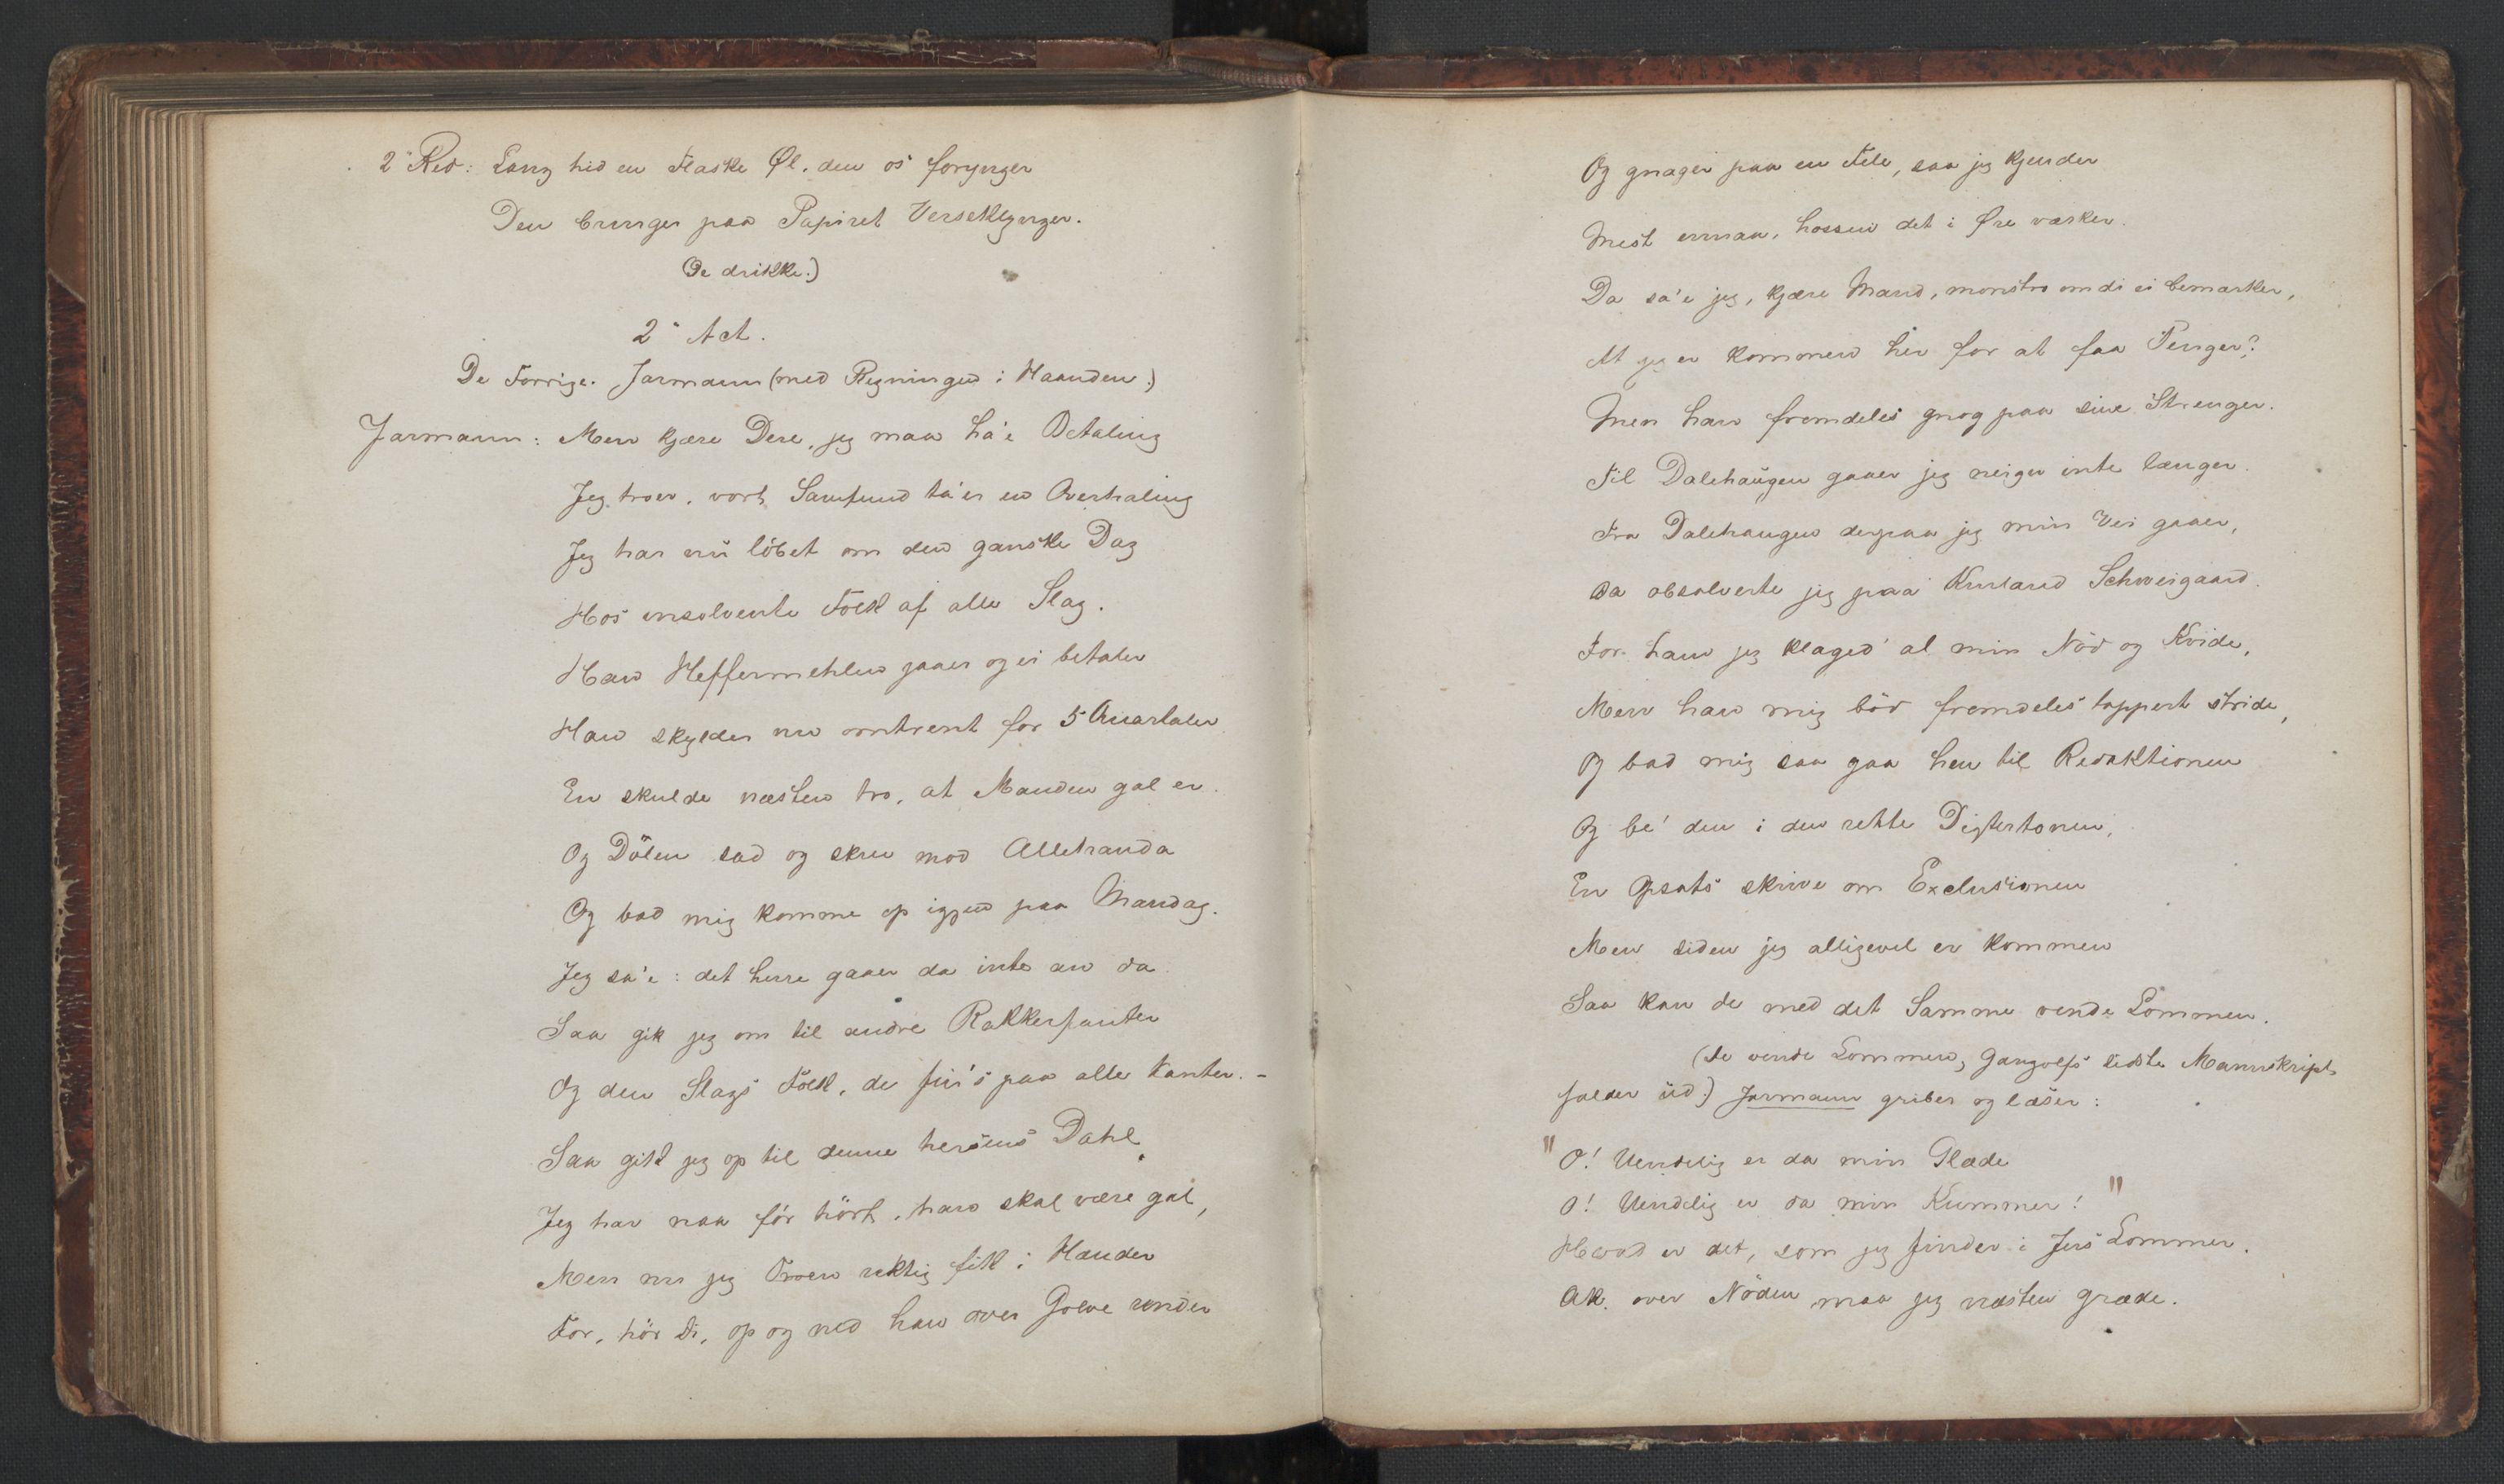 2' Red: Lang hid en Flaske Øl, den os forynger
Den bringer paa Papiret Verseklynger.
(De drikke.)
2' Act.
De Forrige. Jarmann (med Regningen i Haanden.)
Jarmann: Men kjære Dere, jeg maa ha'e Betaling
Jeg troer, vort Samfund ta'er en Overhaling
Jeg har nu löbet om den ganske Dag
Hos insolvente Folk af alle Slag.
Han Heffermehlen gaaer og ei betaler
Han skylder nu omtrent for 5 Quartaler
En skulde næsten tro, at Manden gal er.
Og Dölen sad og skrev mod Allehanda
Og bad mig komme op igjen paa Mandag.
Jeg sa'e: det herre gaaer da inte an da
Saa gik jeg om til andre Rakkerfanter
Og den Slags Folk, de fin's paa alle Kanter. -
Saa gik jeg op til denne hersens Dahl,
Jeg har naa för hört, han skal være gal,
Men nu jeg Troen rektig fik i Hænder
For, hör Di, op og ned han over Golve render
Og gnager paa en Fele, saa jeg kjender
Mest ennaa, hossen det i Øre værker.
Da sa'e jeg, kjære Mand, monstro om di ei bemærker,
At jeg er kommen her for at faa Penger?
Men han fremdeles gnog paa sine Strenger.
Til Dalehaugen gaaer jeg neiger inte længer.
Fra Dalehaugen derpaa jeg min Vei gaaer,
Da obsolverte jeg paa Kurland Schweigaard.
For ham jeg klaged' al min Nöd og Kvide,
Men han mig böd fremdeles tappert stride,
Og bad mig saa gaa hen til Redaktionen
Og be' den i den rette Digtertonen,
En Opsats skrive om Exclusionen
Men siden jeg alligevel er kommen
Saa kan de med det Samme vende Lommen.
(De vende Lommen, Gangolfs sidste Manuskript
falder ud.) Jarmann griber og læser:
"O! Uendelig er da min Glæde
O! Uendelig er da min Kummer!"
Hvad er det, som jeg finder i Jers Lommer.
Ak. over Nöden maa jeg næsten græde.